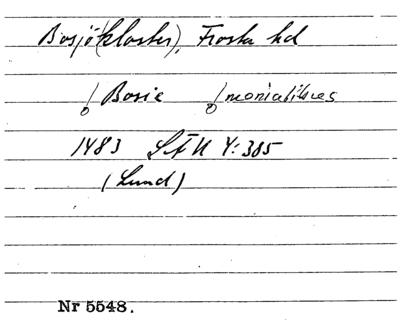 Bosjö(kloster), Frosta hd
Bosie monialibus
1483 SFU 4:385
(Lund)
Nr 5548.